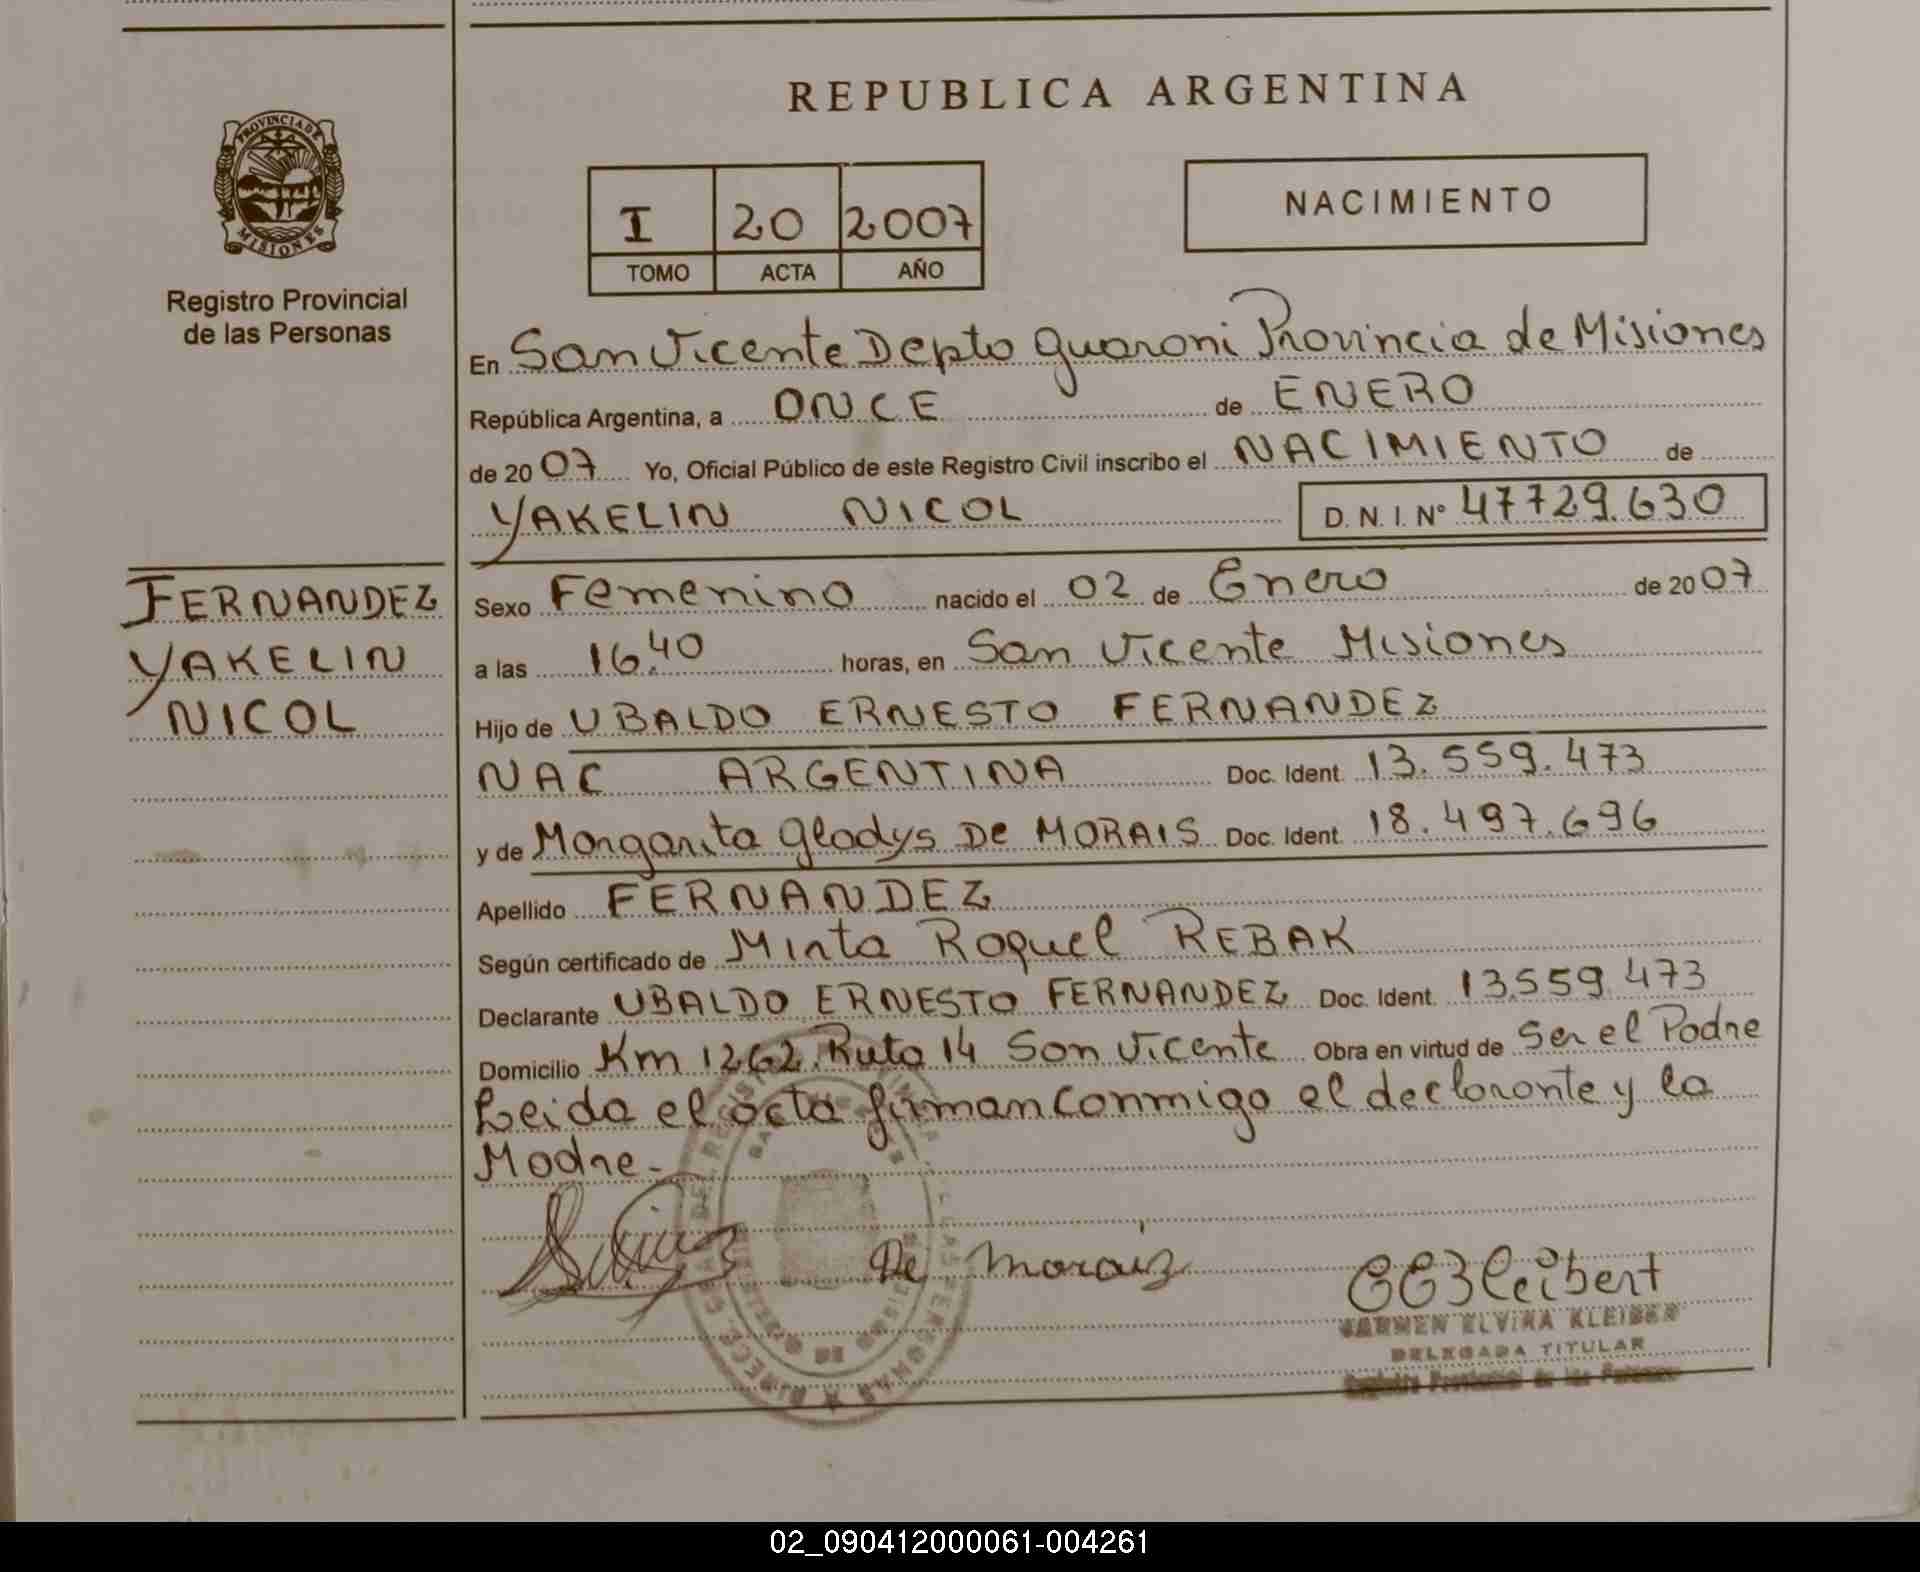 REPUBLICA ARGENTINA
PROVINCIA DE
MISIONES
Registro Provincial
de las Personas
I 20 2007
TOMO ACTA AÑO
NACIMIENTO
En San Vicente Depto Guarani Provincia de Misiones
República Argentina, a ONCE de ENERO
de 2007 Yo, Oficial Público de este Registro Civil inscribo el NACIMIENTO de
YAKELIN NICOL D.N.I. Nº 47729.630
FERNANDEZ
YAKELIN
NICOL
Sexo Femenino nacido el 02 de Enero de 2007
a las 16.40 horas, en San Vicente Misiones
Hijo de UBALDO ERNESTO FERNANDEZ
NAC ARGENTINA Doc. Ident. 13.559.473
y de Margarita Gladys De MORAIS Doc. Ident. 18.497.696
Apellido FERNANDEZ
Según certificado de Mirta Raquel REBAK
Declarante UBALDO ERNESTO FERNANDEZ Doc. Ident. 13.559.473
Domicilio Km 1262 Ruta 14 San Vicente Obra en virtud de Ser el Padre
Leida el acta firman conmigo el declarante y la
Madre.-
De Moraiz
CARMEN ELVIRA KLEIBER
DELEGADA TITULAR
Registro Provincial de las Personas
02_090412000061-004261